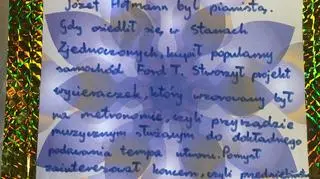 Józef Hofmann był pianistą.
Gdy osiedlił się w Stanach
Zjednoczonych, kupił popularny
samochód Ford T. Stworzył projekt
wycieraczek, który wzorowany był
na metronomie, czyli przyrządzie
muzycznym służącym do dokładnego
podawania tempa utworu. Pomysł
zainteresował koncern, czyli